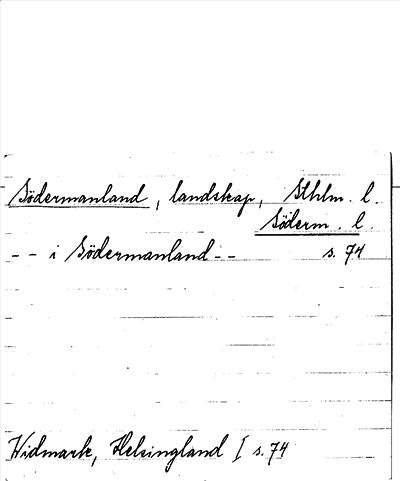 Södermanland, landskap, Sthlm. l.
Söderm. l.
- - i Södermanland - - s. 74
Widmark, Helsingland I s. 74